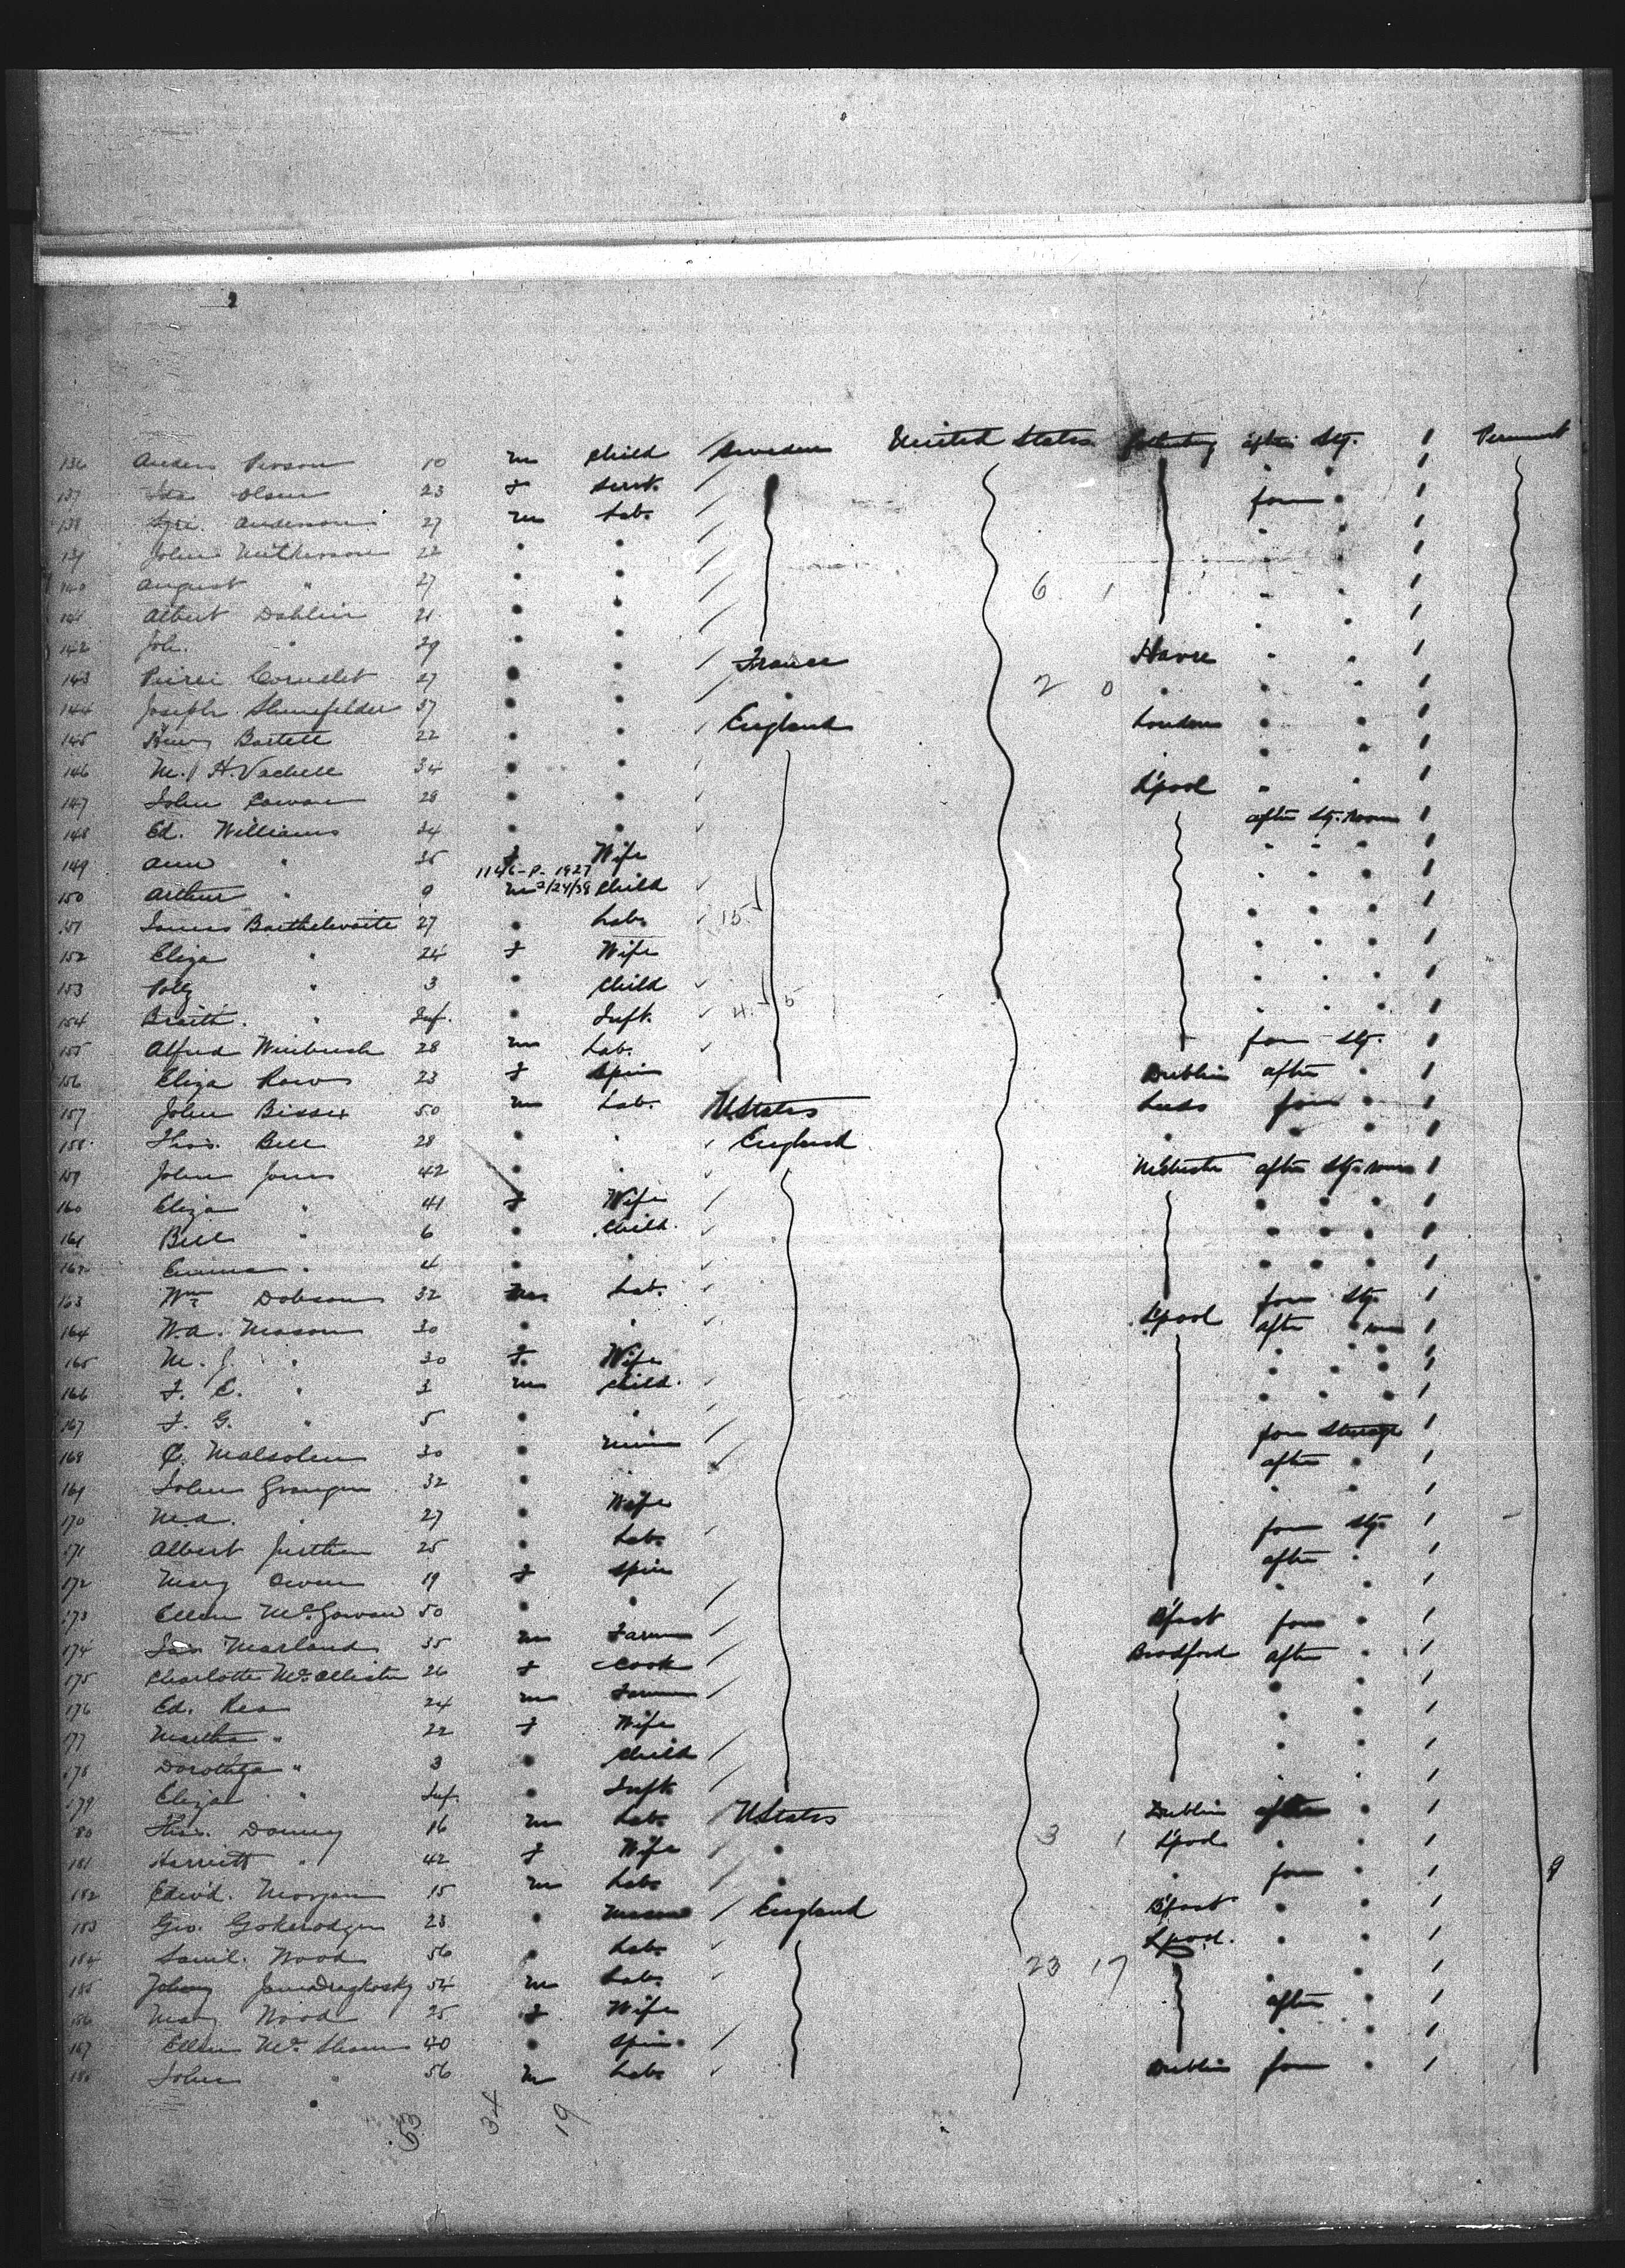 136 Anders Person 10 m Child Sweden United States Gothenburg after Stg. 1 Permanent
137 Ida Olsen 23 f Servt. " " 1
138 Anderson 27 m Lab. fore " 1
139 John 22 " " " " 1
140 August " 27 " " " " 1
141 Albert Dahlin 21 " " 6 1 " " 1
142 Joh. " 29 " " " " 1
143 Cornelet 27 " " France Havre " " 1
144 Joseph 37 " " " 2 0 " " " 1
145 Henry Bartell 22 " " England London " " 1
146 M. H. Vachell 34 " " " " 1
147 John Cowan 28 " " L'pool " " 1
148 Ed. Williams 34 " " after Stg. room 1
149 Ann " 35 f Wife " " " 1
1146-P-1927
150 Arthur " 9 m 2/24/38 Child " " " 1
151 James Barthelwaite 27 " Lab. 15 " " " 1
152 Eliza " 24 f Wife " " " 1
153 Polly " 3 " Child " " " 1
154 " Inf. " Inft. 4 5 " " " 1
155 Alfred 28 m Lab. fore Stg. 1
156 Eliza 23 f Spin Dublin after " 1
157 John 50 m Lab. U States Leeds fore " 1
158 Thos. Bell 28 " " England " " " 1
159 John Jones 42 " " after Stg. room 1
160 Eliza " 41 f Wife " " " 1
161 Bill " 6 " Child " " " 1
162 Emma " 4 " " " " " 1
163 Wm Dobson 32 m Lab. fore Stg. 1
164 W. A. Mason 30 " " L'pool after " room 1
165 M. J. " 30 f Wife " " " 1
166 F. E. " 3 m Child " " " 1
167 F. G. " 5 " " " " " 1
168 30 " fore Steerage 1
169 John Granger 32 " " after " 1
170 M. A. " 27 " Wife " " 1
171 Albert 25 " Lab. fore Stg. 1
172 Mary Owen 19 f Spin after " 1
173 Ellen McGowan 50 " " " " 1
174 Marland 35 m Farm B'fast fore " 1
175 Charlotte McAllister 26 f Cook Bradford after " 1
176 Ed. Rea 24 m Farm " " 1
177 Martha " 22 f Wife " " 1
178 " 3 " Child " " 1
179 Eliza " Inf. " Inft. " " 1
180 Thos. 16 m Lab. U States Dublin after " 1
181 Harriett " 42 f Wife " 3 1 L'pool " " 1
182 Edw'd. Morgan 15 m Lab. " " fore " 1 9
183 Geo. 23 " England B'fast " " 1
184 Saml. Wood 56 " Lab. L'pool. " " 1
185 54 m Lab. 23 17 " " 1
186 Mary Wood 25 f Wife after " 1
187 Ellen 40 " Spin " " 1
188 John " 56 m Lab. Dublin fore " 1
53 34 19